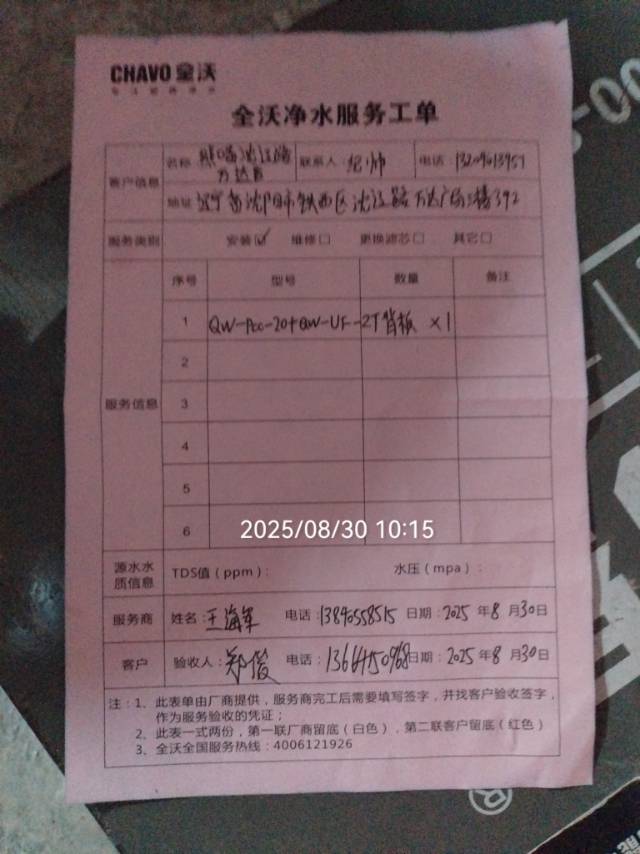 CHAVO 全沃
全沃净水服务工单
客户信息
名称 沈辽路万达店 联系人: 纪帅 电话:
地址 辽宁省沈阳市铁西区沈辽路万达广场3楼392
服务类别 安装☑ 维修□ 更换滤芯□ 其它□
服务信息
序号 型号 数量 备注
1 QW-Pcc-20+QW-UF-2T背板 ×1
2
3
4
5
6
2025/08/30 10:15
源水水质信息 TDS值（ppm）: 水压（mpa）:
服务商 姓名: 王海军 电话:13840558515 日期: 2025 年 8 月 30 日
客户 验收人: 郑俊 电话: 日期: 2025 年 8 月 30 日
注：1、此表单由厂商提供，服务商完工后需要填写签字，并找客户验收签字，
作为服务验收的凭证；
2、此表一式两份，第一联厂商留底（白色），第二联客户留底（红色）
3、全沃全国服务热线：4006121926
®